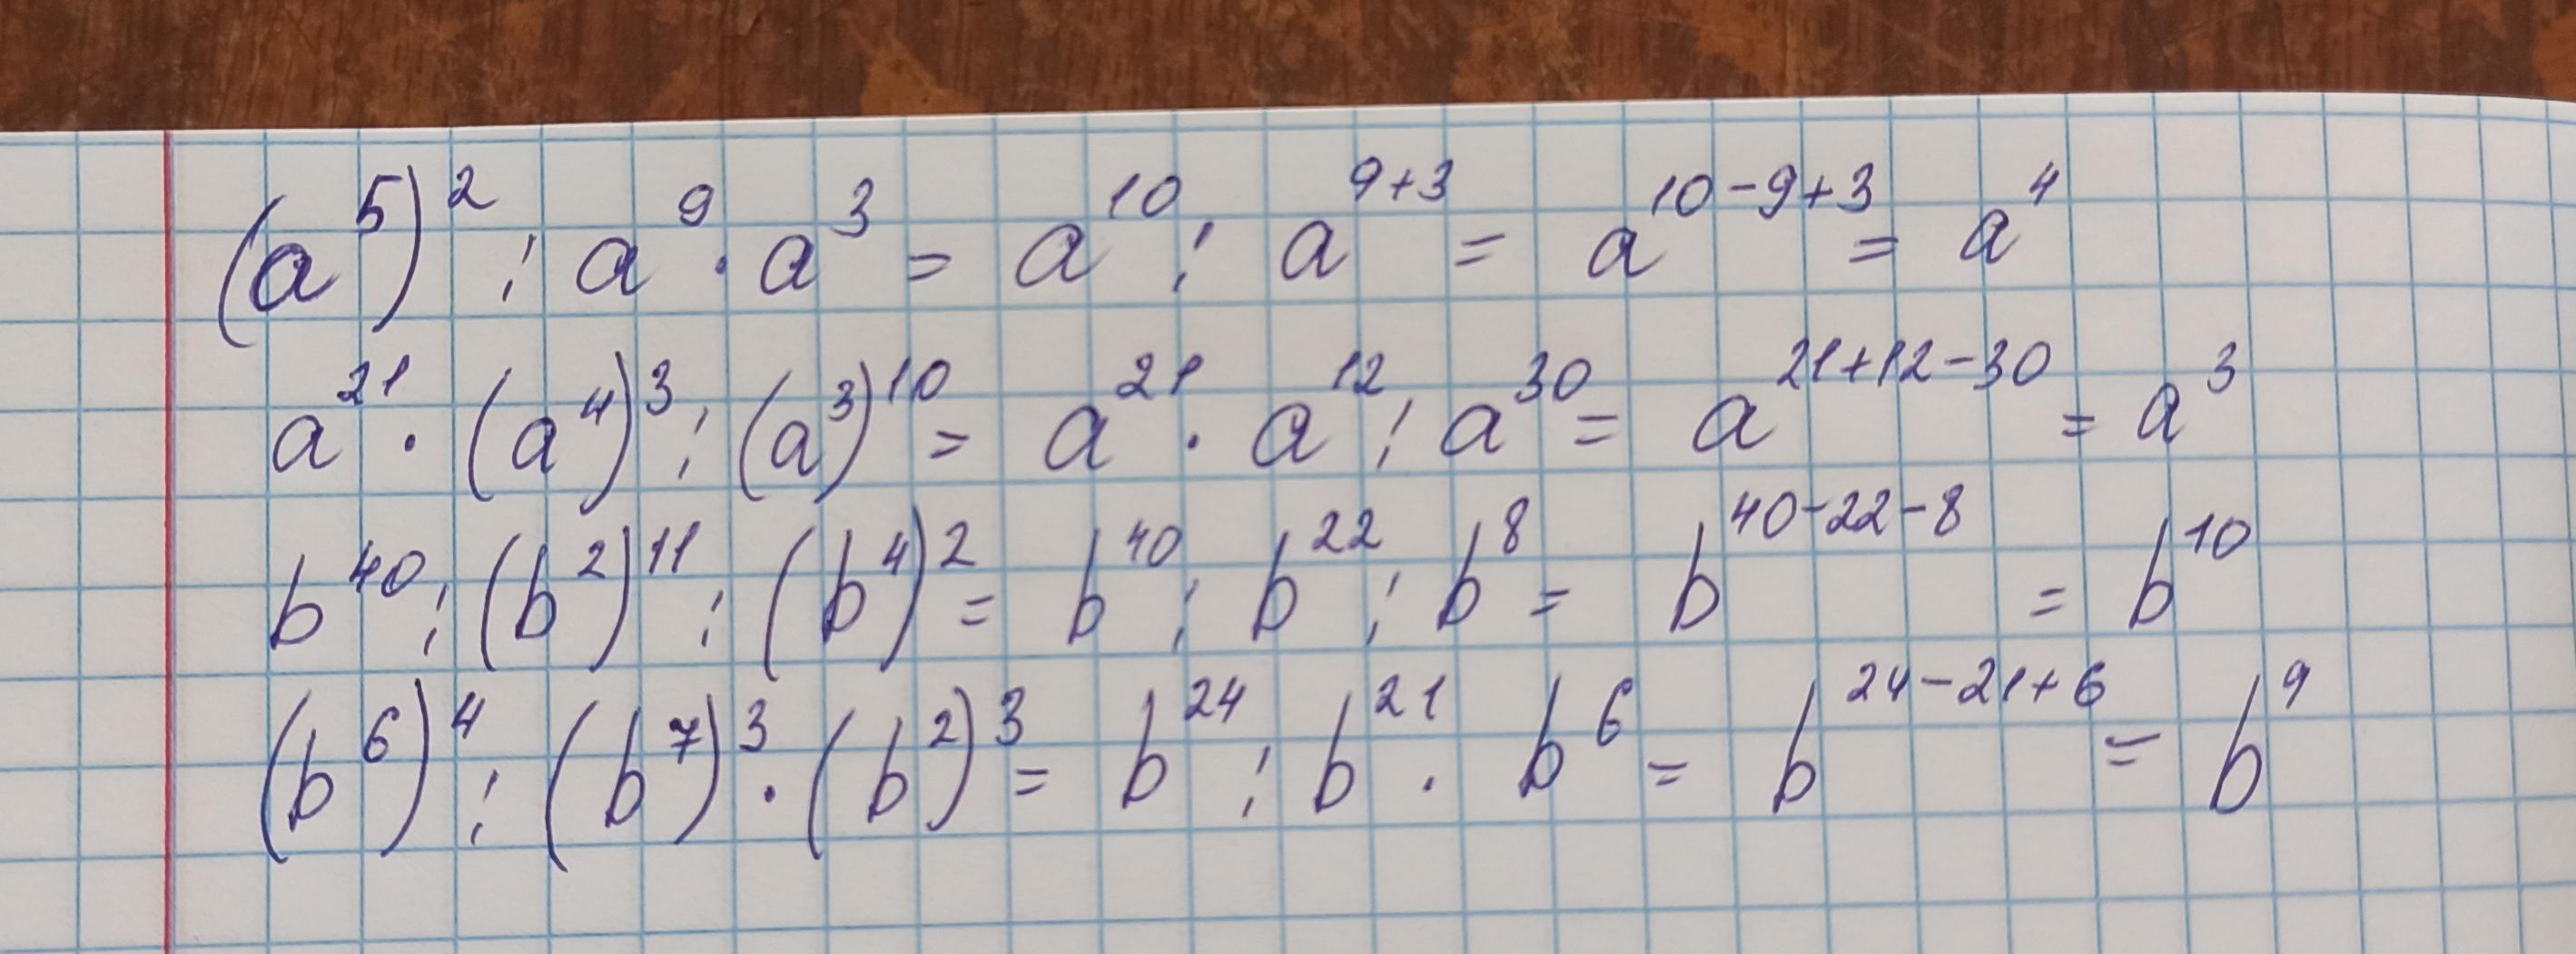 (a⁵)² : a⁹ · a³ = a¹⁰ : a⁹⁺³ = a¹⁰⁻⁹⁺³ = a⁴
a²¹ · (a⁴)³ : (a³)¹⁰ = a²¹ · a¹² : a³⁰ = a²¹⁺¹²⁻³⁰ = a³
b⁴⁰ : (b²)¹¹ : (b⁴)² = b⁴⁰ : b²² : b⁸ = b⁴⁰⁻²²⁻⁸ = b¹⁰
(b⁶)⁴ : (b⁷)³ · (b²)³ = b²⁴ : b²¹ · b⁶ = b²⁴⁻²¹⁺⁶ = b⁹